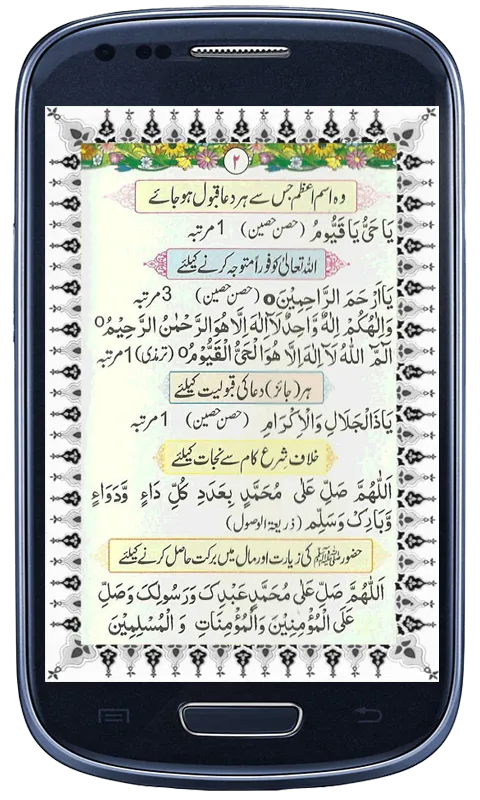 ۲
وہ اسم اعظم جس سے ہر دعا قبول ہو جائے
یَا حَیُّ یَا قَیُّوْمُ (حصن حصین) 1 مرتبہ
اللہ تعالیٰ کو فوراً متوجہ کرنے کیلئے
یَا اَرْحَمَ الرَّاحِمِیْنَ o (حصن حصین) 3 مرتبہ
وَاِلٰهُكُمْ اِلٰهٌ وَّاحِدٌ لَآ اِلٰهَ اِلَّا هُوَ الرَّحْمٰنُ الرَّحِیْمُ o
الٓمّٓ اللّٰهُ لَآ اِلٰهَ اِلَّا هُوَ الْحَیُّ الْقَیُّوْمُ o (ترمذی) 1 مرتبہ
ہر (جائز) دعا کی قبولیت کیلئے
یَاذَالْجَلَالِ وَالْاِكْرَامِ (حصن حصین) 1 مرتبہ
خلاف شرع کام سے نجات کیلئے
اَللّٰهُمَّ صَلِّ عَلٰی مُحَمَّدٍ بِعَدَدِ كُلِّ دَاءٍ وَّدَوَاءٍ
وَّبَارِكْ وَسَلِّمْ (ذریعۃ الوصول)
حضور ﷺ کی زیارت اور مال میں برکت حاصل کرنے کیلئے
اَللّٰهُمَّ صَلِّ عَلٰی مُحَمَّدٍ عَبْدِكَ وَرَسُوْلِكَ وَصَلِّ
عَلَی الْمُؤْمِنِیْنَ وَالْمُؤْمِنَاتِ وَالْمُسْلِمِیْنَ